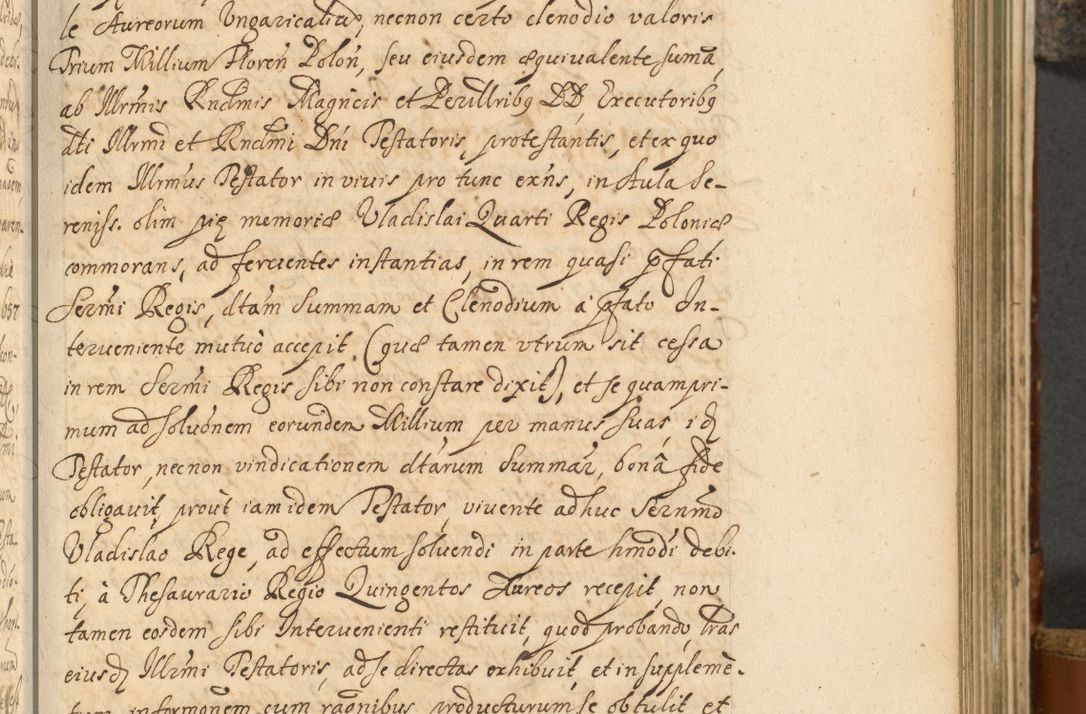 le Aureorum Ungaricaliũ, necnon certo clenodio valoris
Trium Millium Floreñ Poloñ, seu eiusdem æquivalente sumã,
ab Illrmis Rndmis Magncis et Perillribꝫ DD Executoribꝫ
dti Illrmi et Rndmi Dńi Testatoris, protestantis, et ex quo
idem Illrmus Testator in vivis pro tunc exńs, in Aula Se-
reniss. olim pię memoriæ Vladislai Quarti Regis Poloniæ
commorans, ad fervientes instantias, in rem quasi pfati
Sermi Regis, dtam Summam et Clenodium a pfato In-
terveniente mutuò accepit (quæ tamen utrum sit cessa
in rem Sermi Regis sibi non constare dixit), et se quampri-
mum ad solućnem eorunden Millium per manus suas, id
Testator, necnon vindicationem dtarum Summar, bonâ fide
obligavit, prout iam idem Testator, vivente adhuc Sernmo
Vladislao Rege, ad effectum solvendi in parte hmodi debi-
ti, à Thesaurario Regio Quingentos Aureos recepit, non
tamen eosdem sibi Intervenienti restituit, quod probando, lras
eiusd Illrmi Testatoris, ad se directas exhibuit, et in supplemē-
tum informonem cum raonibus producturum se obtulit et